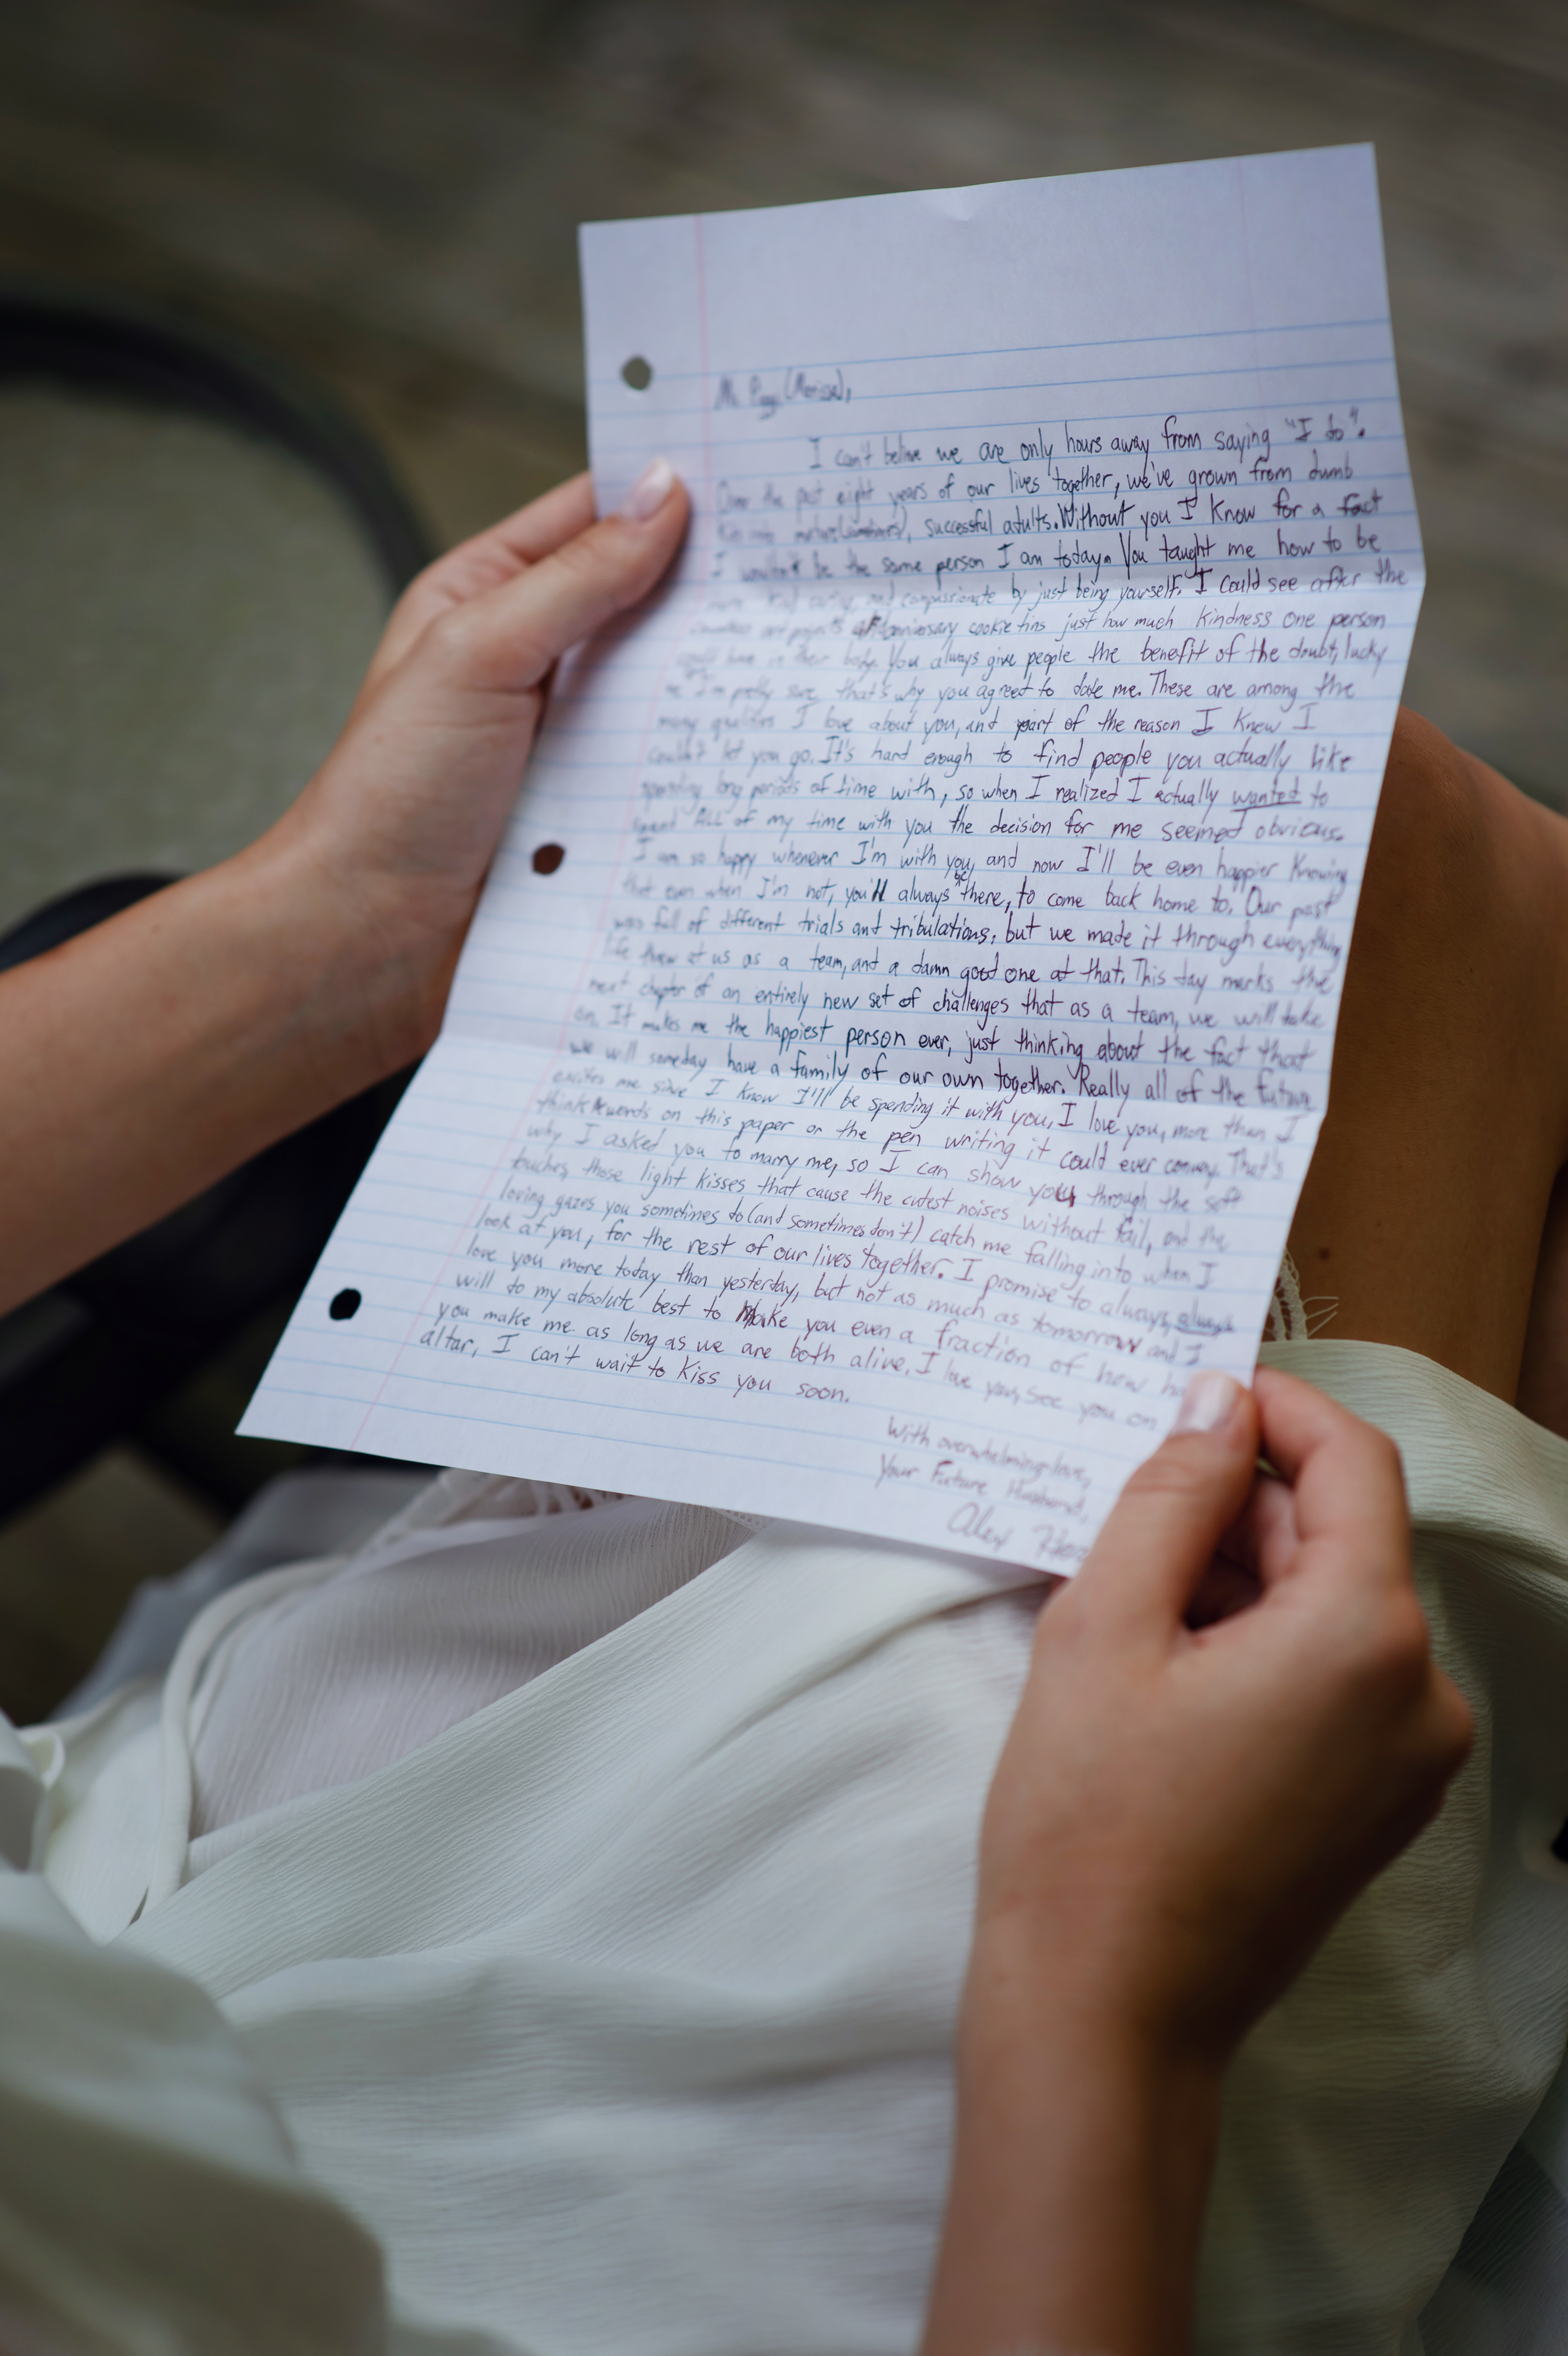 I can't belive we are only hours away from saying "I do".
Over the past eight years of our lives together, we've grown from dumb
successful adults. Without you I know for a fact
I wouldn't be the same person I am today. You taught me how to be
and compassionate by just being yourself. I could see after the
cookie tins just how much kindness one person
could have in their body. You always give people the benefit of the doubt, lucky
I'm pretty sure that's why you agreed to date me. These are among the
many qualities I love about you, and part of the reason I knew I
couldn't let you go. It's hard enough to find people you actually like
spending long periods of time with, so when I realized I actually wanted to
spend "ALL" of my time with you the decision for me seemed obvious.
I am so happy whenever I'm with you, and now I'll be even happier knowing
that even when I'm not, you'll always be there, to come back home to. Our past
was full of different trials and tribulations, but we made it through everything
life threw at us as a team, and a damn good one at that. This day marks the
next chapter of an entirely new set of challenges that as a team, we will take
on. It makes me the happiest person ever, just thinking about the fact that
we will someday have a family of our own together. Really all of the future
excites me since I know I'll be spending it with you. I love you, more than I
think words on this paper or the pen writing it could ever convey. That's
why I asked you to marry me, so I can show you through the soft
touches, those light kisses that cause the cutest noises without fail, and the
loving gazes you sometimes do (and sometimes don't) catch me falling into when I
look at you, for the rest of our lives together. I promise to always, always
love you more today than yesterday, but not as much as tomorrow and I
will do my absolute best to make you even a fraction of how
you make me as long as we are both alive. I love you, see you on
altar, I can't wait to kiss you soon.
With overwhelming love,
Your Future Husband,
Alex